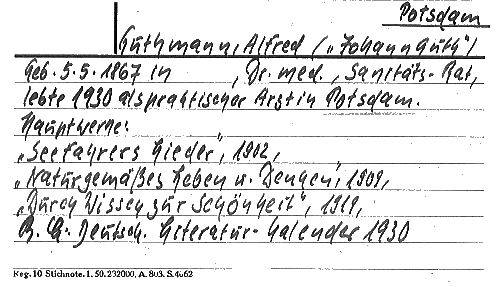 Potsdam
Guthmann, Alfred („Johann Guth“)
Geb. 5.5.1867 in , Dr. med., Sanitäts-Rat,
lebte 1930 als praktischer Arzt in Potsdam.
Hauptwerke:
„Seefahrers Lieder“, 1902,
„Naturgemäßes Leben u. Denken“, 1909,
„Durch Wissen zur Schönheit“, 1919,
Deutsch. Literatur-Kalender 1930
Reg. 10 Stichnote. 1. 50. 232000, A. 803. S. 4062